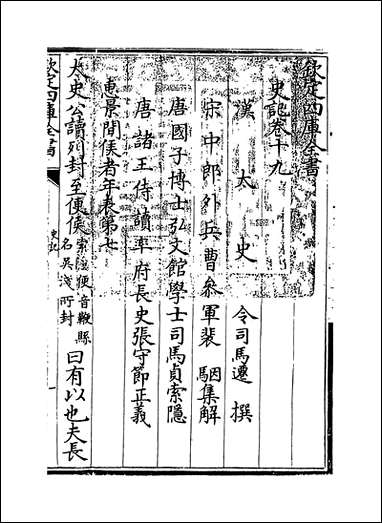 欽定四庫全書
史記卷十九
漢太史令司馬遷撰
宋中郎外兵曹參軍裴駰集解
唐國子博士弘文館學士司馬貞索隱
唐諸王侍讀率府長史張守節正義
惠景間侯者年表第七
太史公讀列封至便侯索隱便音鞭縣名吳淺所封曰有以也夫長
欽定四庫全書
史記